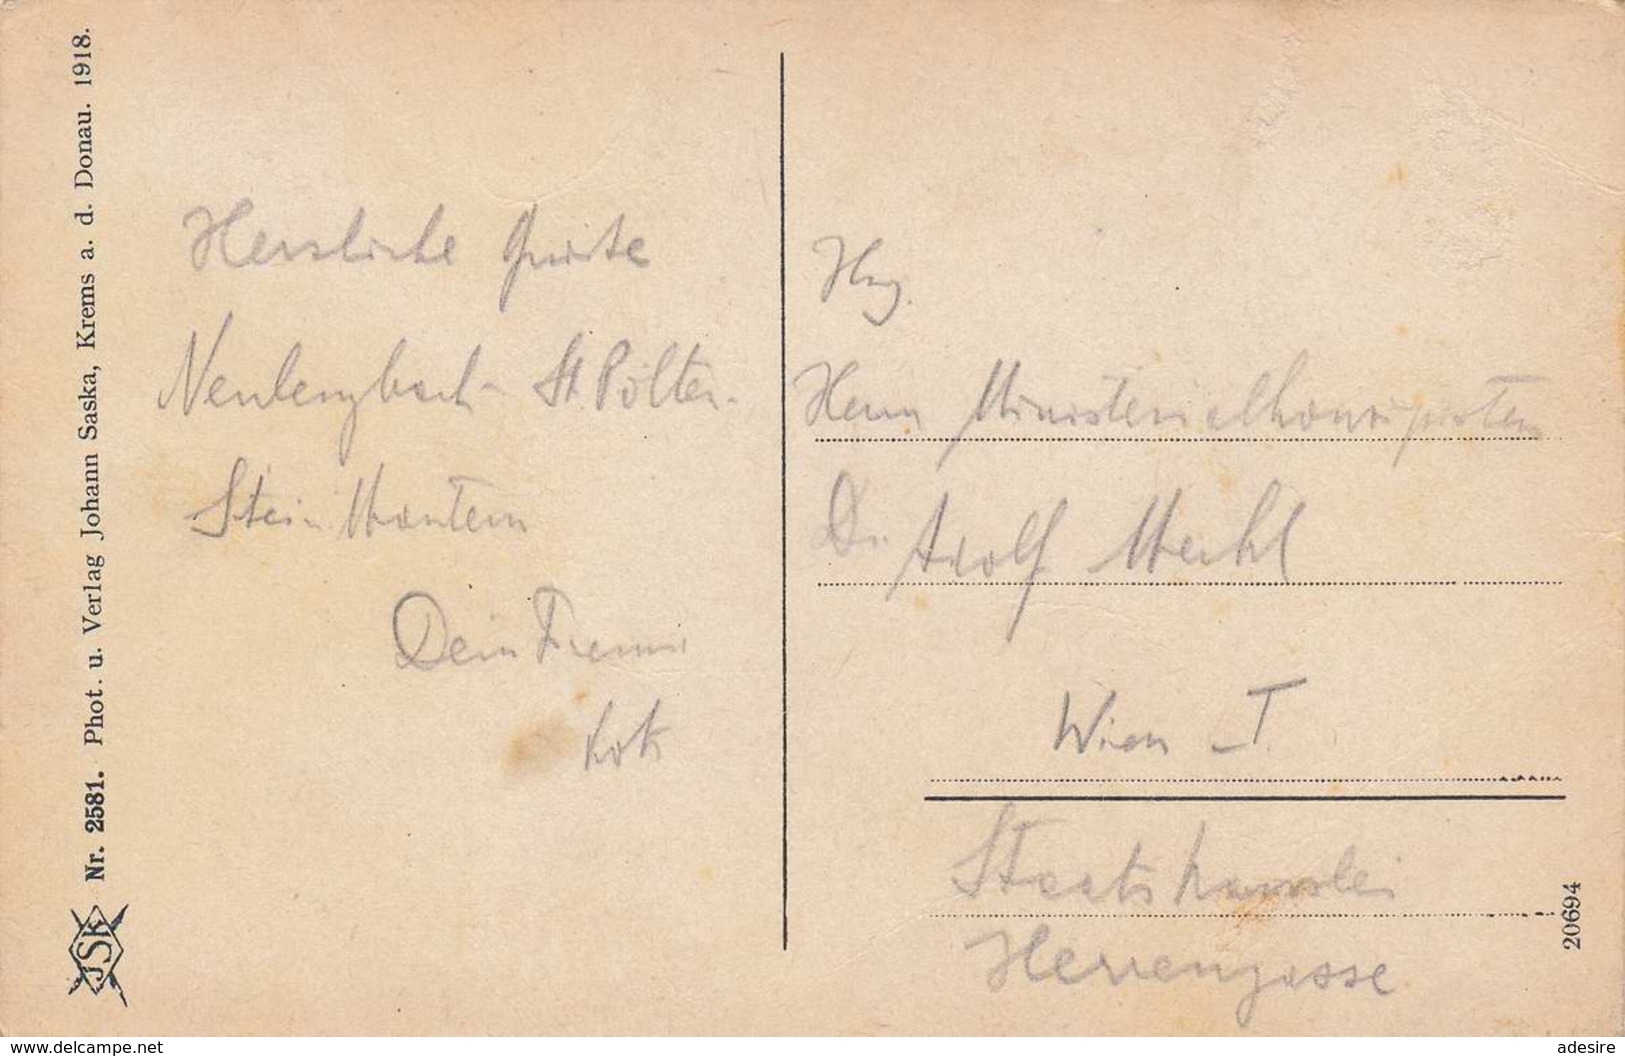 Nr. 2581. Phot. u. Verlag Johann Saska, Krems a. d. Donau. 1918.
JSK
Herzliche Grüße
Neulengbach - St Pölten -
Stein Mautern
Dein Freund
Hrn
Herrn Ministerialkonzipisten
Dr. Adolf
Wien I
Staatskanzlei
Herrengasse
20694
www.delcampe.net
adesire